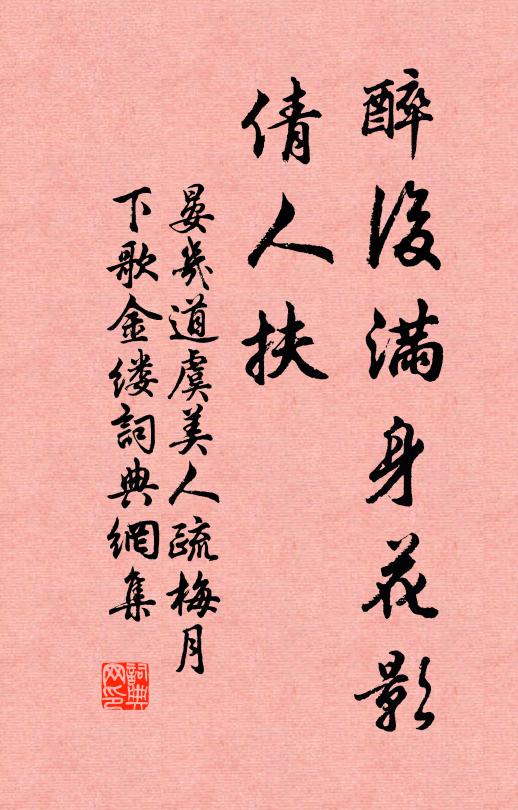 醉後满身花影
倩人扶
晏幾道虞美人疏梅月
下歌金缕詞典網集
詞典网印